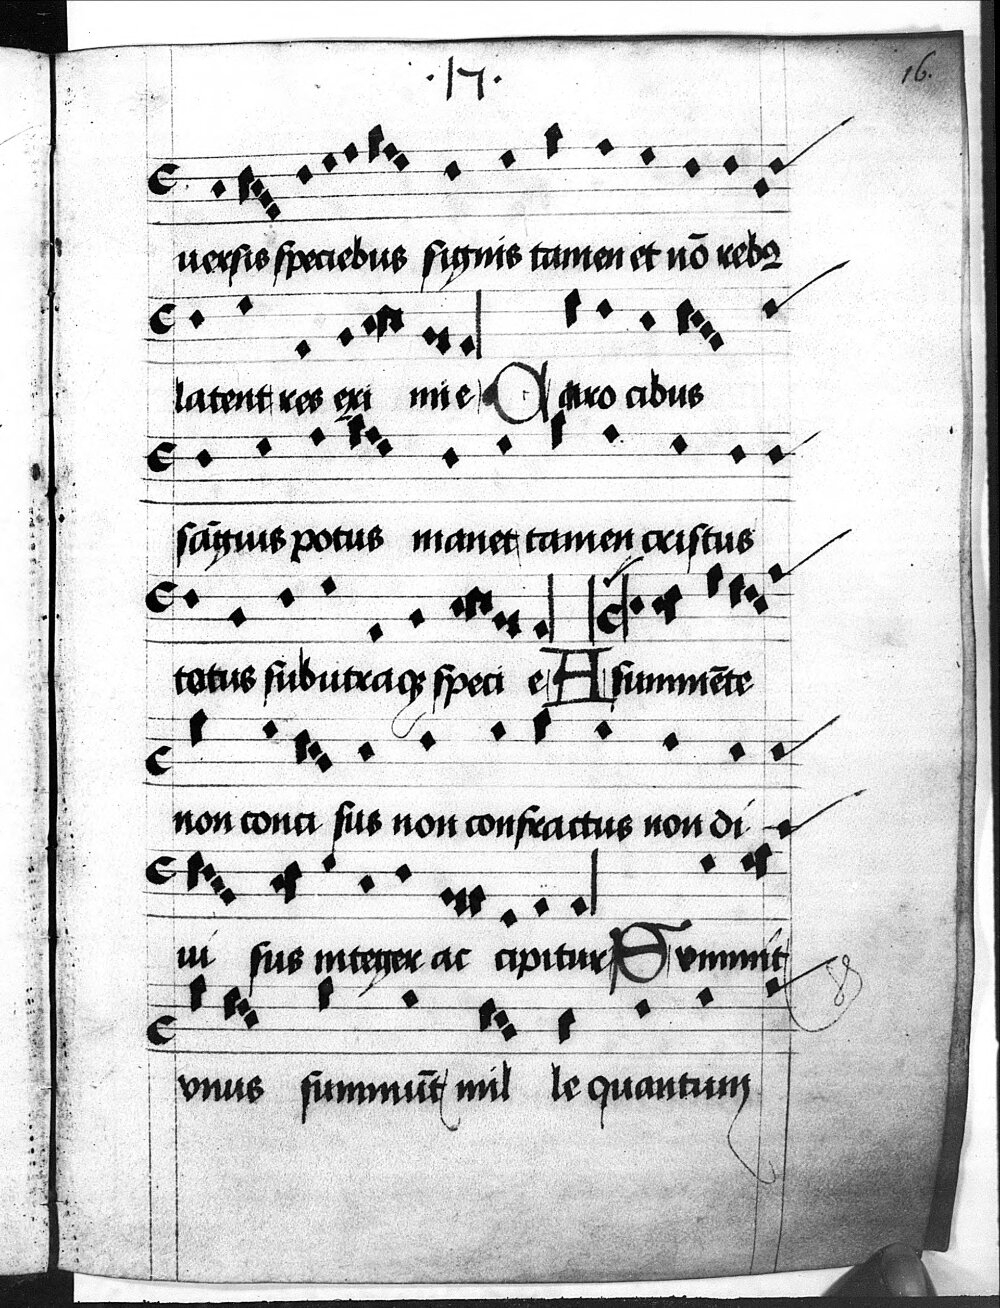 ·17·
16.
uersis speciebus signis tamen et nō rebꝯ
latent res exi mi e Caro cibus
sāguis potus manet tamen cristus
totus sub utraqꝫ speci e A summēte
non conci sus non confractus non di
ui sus integer ac cipitur Summit
vnus summūt mil le quantum